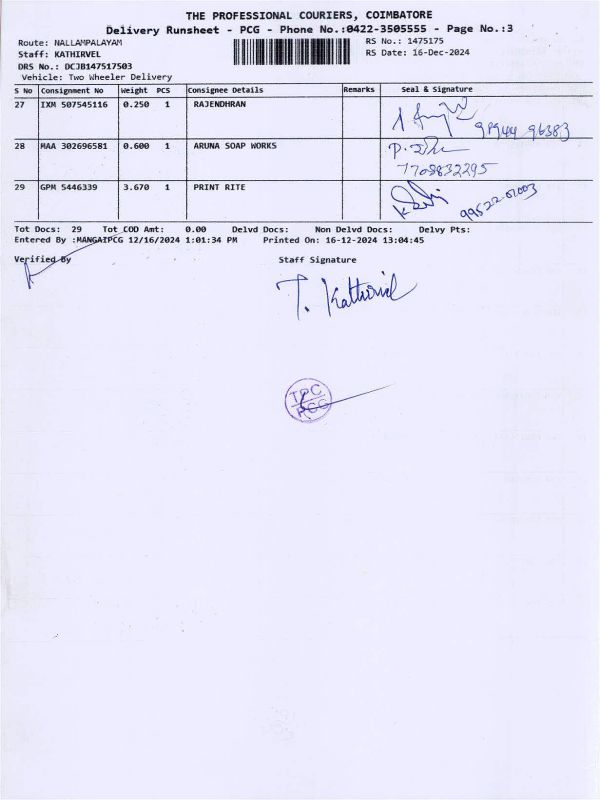 THE PROFESSIONAL COURIERS, COIMBATORE
Delivery Runsheet - PCG - Phone No.:0422-3505555 - Page No.:3
Route: NALLAMPALAYAM RS No.: 1475175
Staff: KATHIRVEL RS Date: 16-Dec-2024
DRS No.: DCJB147517503
Vehicle: Two Wheeler Delivery
S No Consignment No Weight PCS Consignee Details Remarks Seal & Signature
27 IXM 507545116 0.250 1 RAJENDHRAN
98944 96383
28 MAA 302696581 0.600 1 ARUNA SOAP WORKS
7708832295
29 GPM 5446339 3.670 1 PRINT RITE
99522-01003
Tot Docs: 29 Tot COD Amt: 0.00 Delvd Docs: Non Delvd Docs: Delvy Pts:
Entered By :MANGAIPCG 12/16/2024 1:01:34 PM Printed On: 16-12-2024 13:04:45
Verified By Staff Signature
T. Kathirvel
TPC
PCG